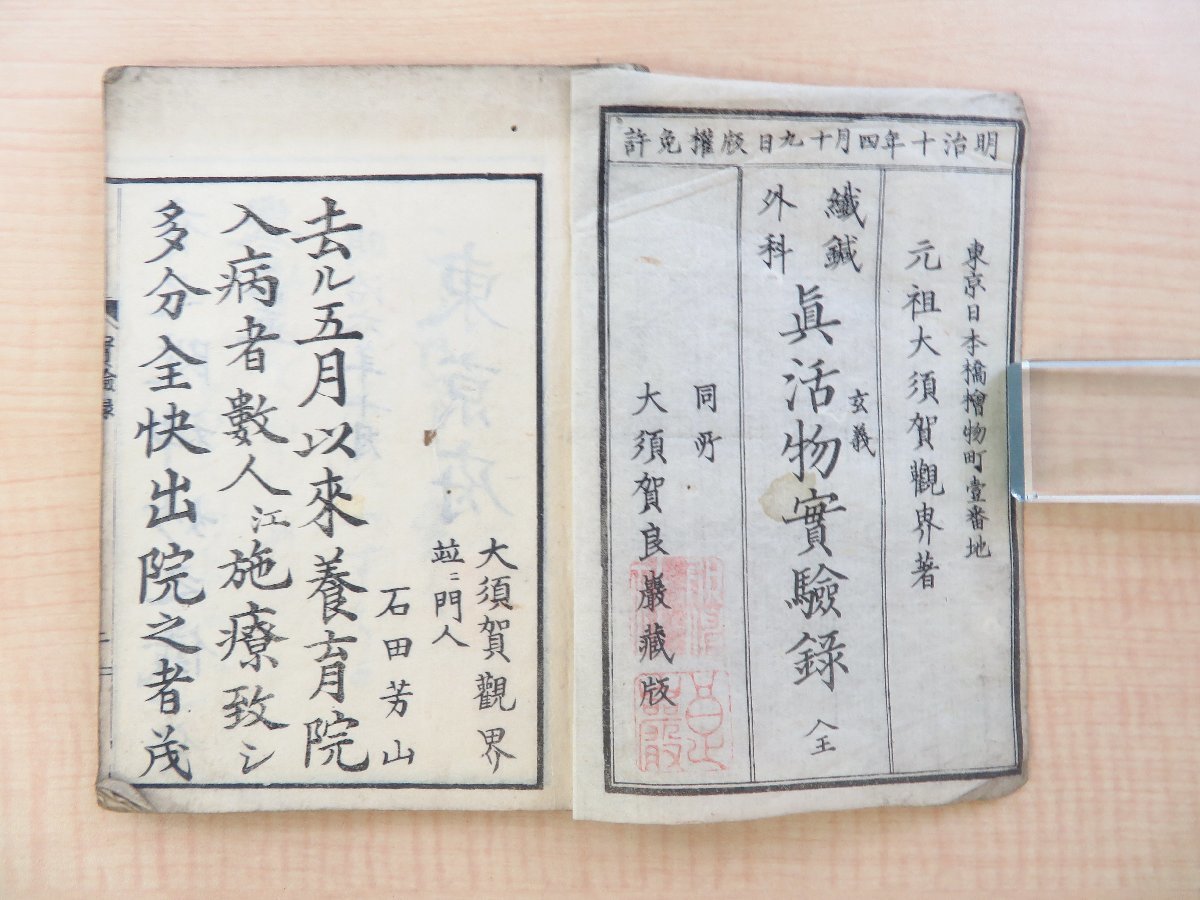 明治十年四月十九日版權免許
東京日本橋檜物町壹番地
元祖大須賀觀界著
纎鍼
外科
眞活物實驗錄 全
玄義
同所
大須賀良巖藏版
大須賀觀界
並ニ門人
石田芳山
去ル五月以來養育院
入病者數人江施療致シ
多分全快出院之者茂